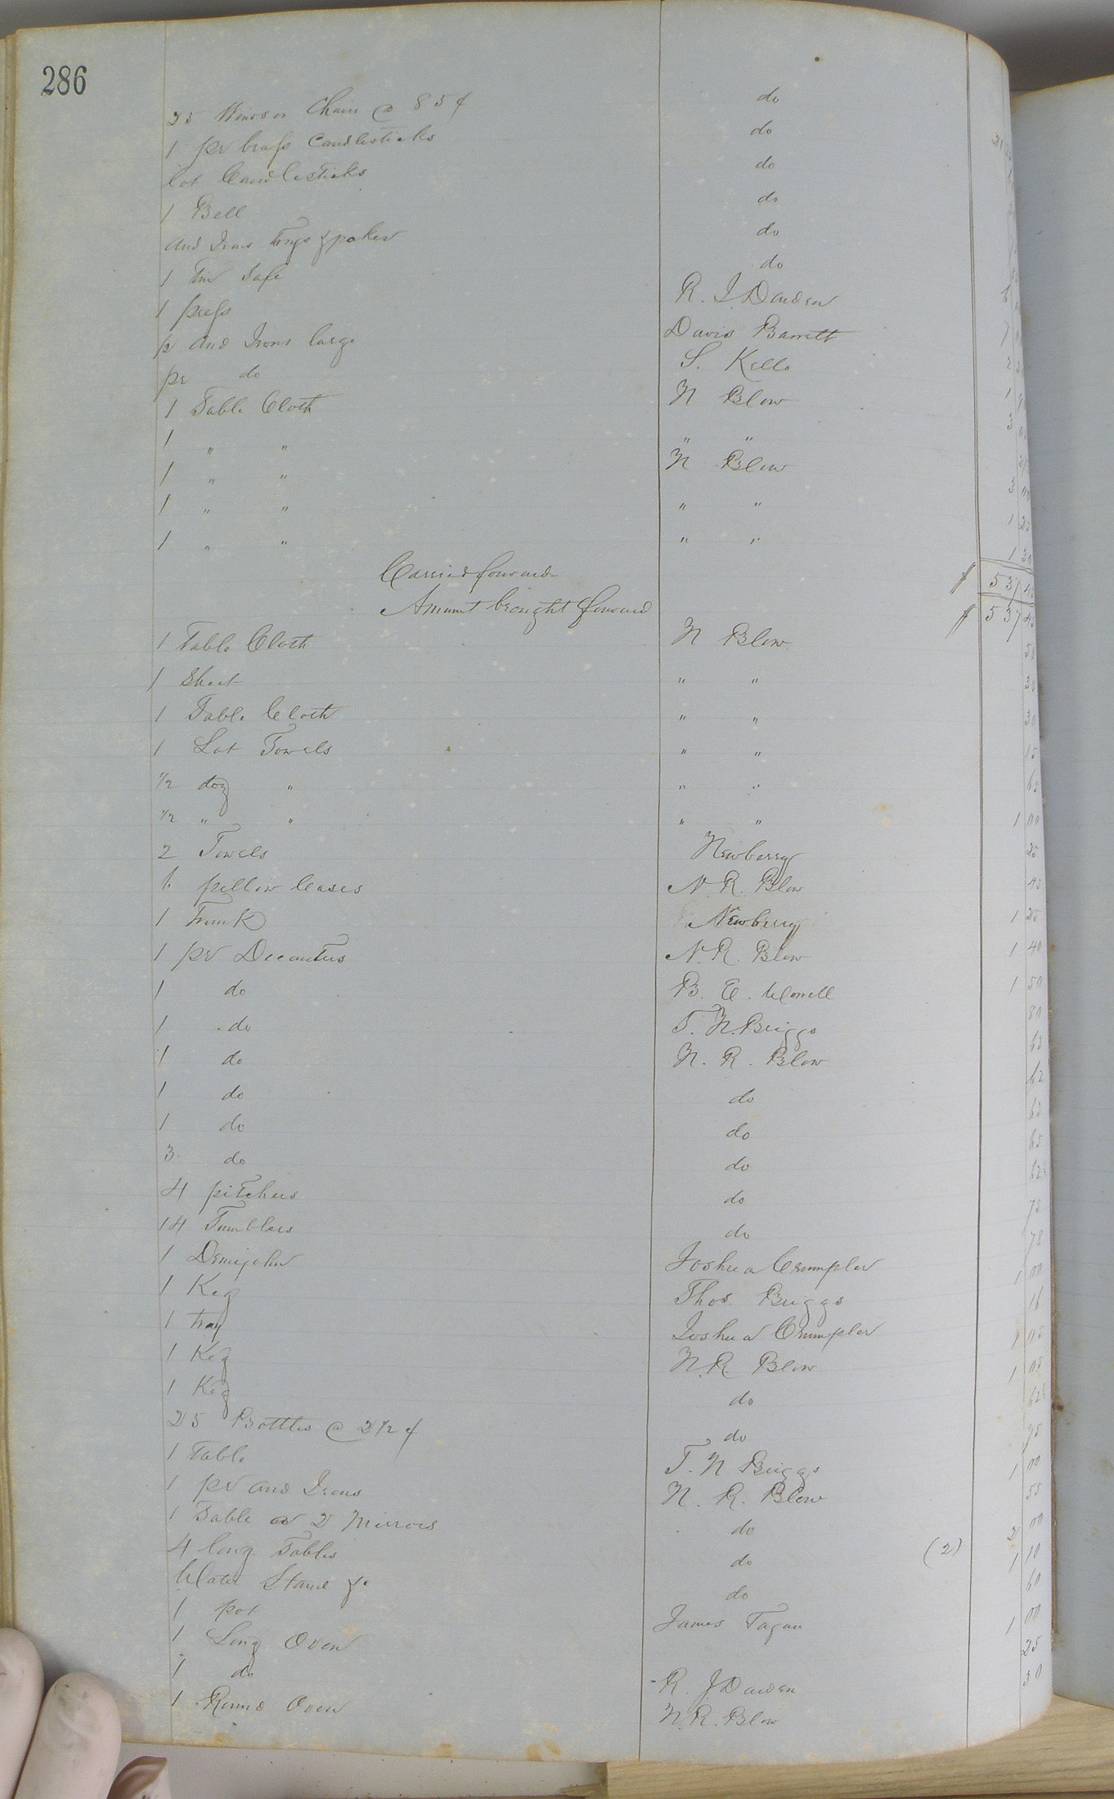 286
25 Windsor Chairs @ 85¢ do
1 pr brass Candlesticks do
Lot Candlesticks do
1 Bell do
And Irons tongs & poker do
1 Tin Safe do
1 press R. J Darden
pr And Irons large Davis Barrett
pr do S. Kello
1 Table Cloth N Blow
1 " " " "
1 " " N Blow
1 " " " "
1 " " " "
Carried forward $ 537
Amount brought forward $ 537
1 Table Cloth N Blow
1 Sheet " "
1 Table Cloth " "
1 Lot Towels " " 15
1/2 doz " " "
1/2 " " " " 1 00
2 Towels Newberry 25
pillow Cases N. R. Blow
1 Trunk Newberry 1 25
1 pr Decanters N. R. Blow 1 40
1 do B. E. 1 50
1 do T. N. Briggs
1 do N. R. Blow
1 do do
1 do do
3 do do
4 pitchers do
14 Tumblers do
1 Demijohn Joshua Crumpler 1 00
1 Keg Thos. Briggs
1 tray Joshua Crumpler
1 Keg N. R. Blow
1 Keg do
25 Bottles @ 2 1/2 ¢ do
1 Table T. N Briggs 1 00
1 pr And Irons N. R. Blow 55
1 Table & 2 Mirrors do 2 00
4 long Tables do (2) 1 10
Water Stand &c do 60
1 pot James 1 00
1 Long Oven 25
1 do R. J Darden 30
1 Round Oven N. R. Blow